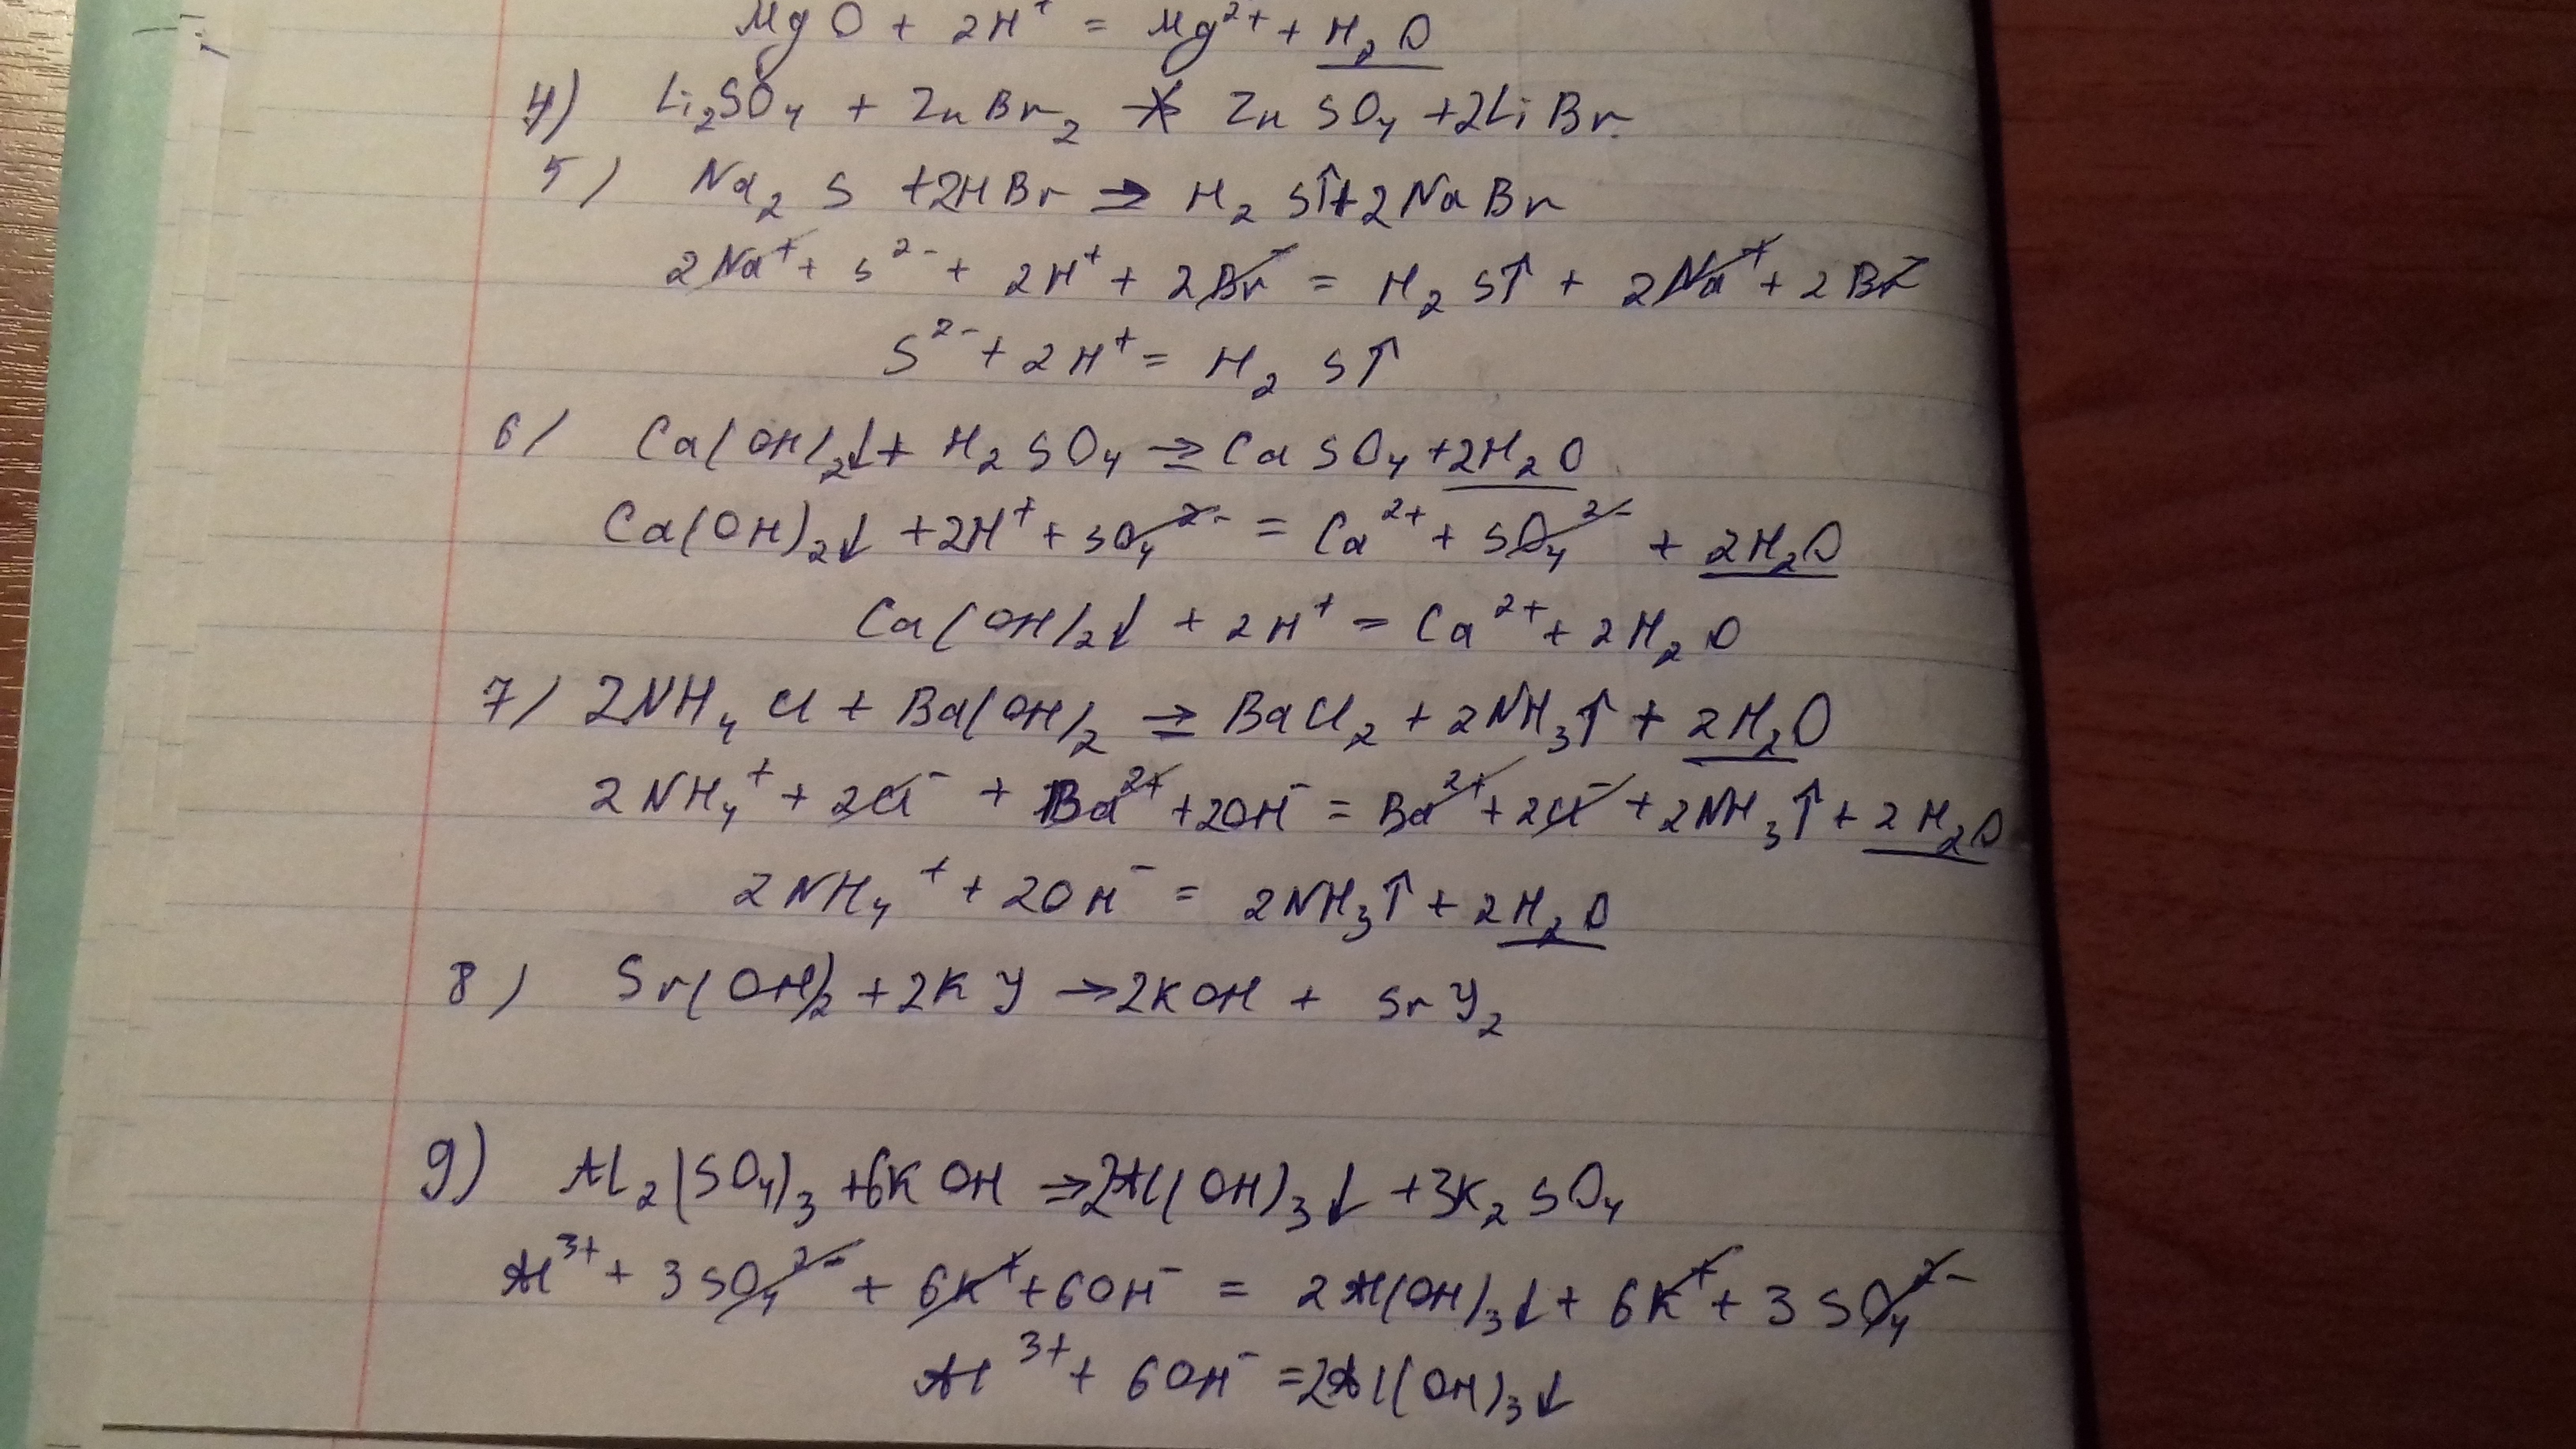 MgO + 2H⁺ = Mg²⁺ + H₂O
4) Li₂SO₄ + ZnBr₂ ↛ ZnSO₄ + 2LiBr
5) Na₂S + 2HBr → H₂S↑ + 2NaBr
2Na⁺ + S²⁻ + 2H⁺ + 2Br⁻ = H₂S↑ + 2Na⁺ + 2Br⁻
S²⁻ + 2H⁺ = H₂S↑
6) Ca(OH)₂↓ + H₂SO₄ → CaSO₄ + 2H₂O
Ca(OH)₂↓ + 2H⁺ + SO₄²⁻ = Ca²⁺ + SO₄²⁻ + 2H₂O
Ca(OH)₂↓ + 2H⁺ = Ca²⁺ + 2H₂O
7) 2NH₄Cl + Ba(OH)₂ → BaCl₂ + 2NH₃↑ + 2H₂O
2NH₄⁺ + 2Cl⁻ + Ba²⁺ + 2OH⁻ = Ba²⁺ + 2Cl⁻ + 2NH₃↑ + 2H₂O
2NH₄⁺ + 2OH⁻ = 2NH₃↑ + 2H₂O
8) Sr(OH)₂ + 2KY → 2KOH + SrY₂
9) Al₂(SO₄)₃ + 6KOH → 2Al(OH)₃↓ + 3K₂SO₄
Al³⁺ + 3SO₄²⁻ + 6K⁺ + 6OH⁻ = 2Al(OH)₃↓ + 6K⁺ + 3SO₄²⁻
Al³⁺ + 6OH⁻ = 2Al(OH)₃↓